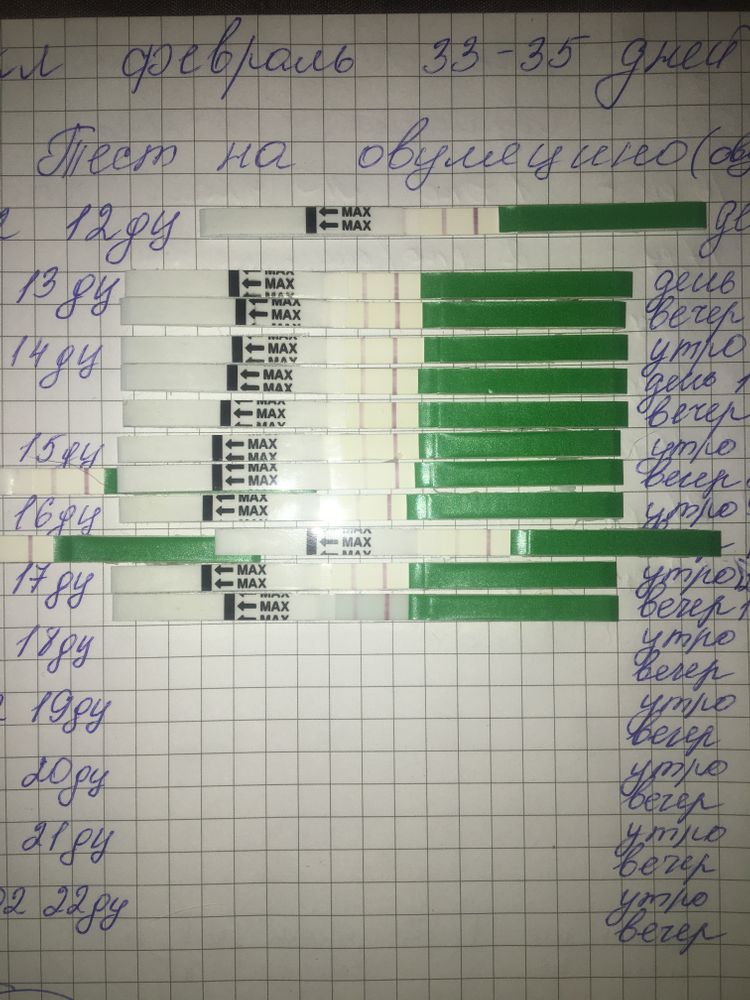 февраль 33-35 дней
Тест на овуляцию(ову
12ду MAX MAX
13ду MAX MAX MAX день
MAX MAX вечер
14ду MAX MAX утро
MAX MAX день
MAX MAX вечер
15ду MAX MAX утро
MAX MAX вечер
16ду MAX MAX утро
MAX MAX MAX
17ду MAX MAX утро
MAX MAX вечер
18ду утро
вечер
19ду утро
вечер
20ду утро
вечер
21ду утро
вечер
22ду утро
вечер